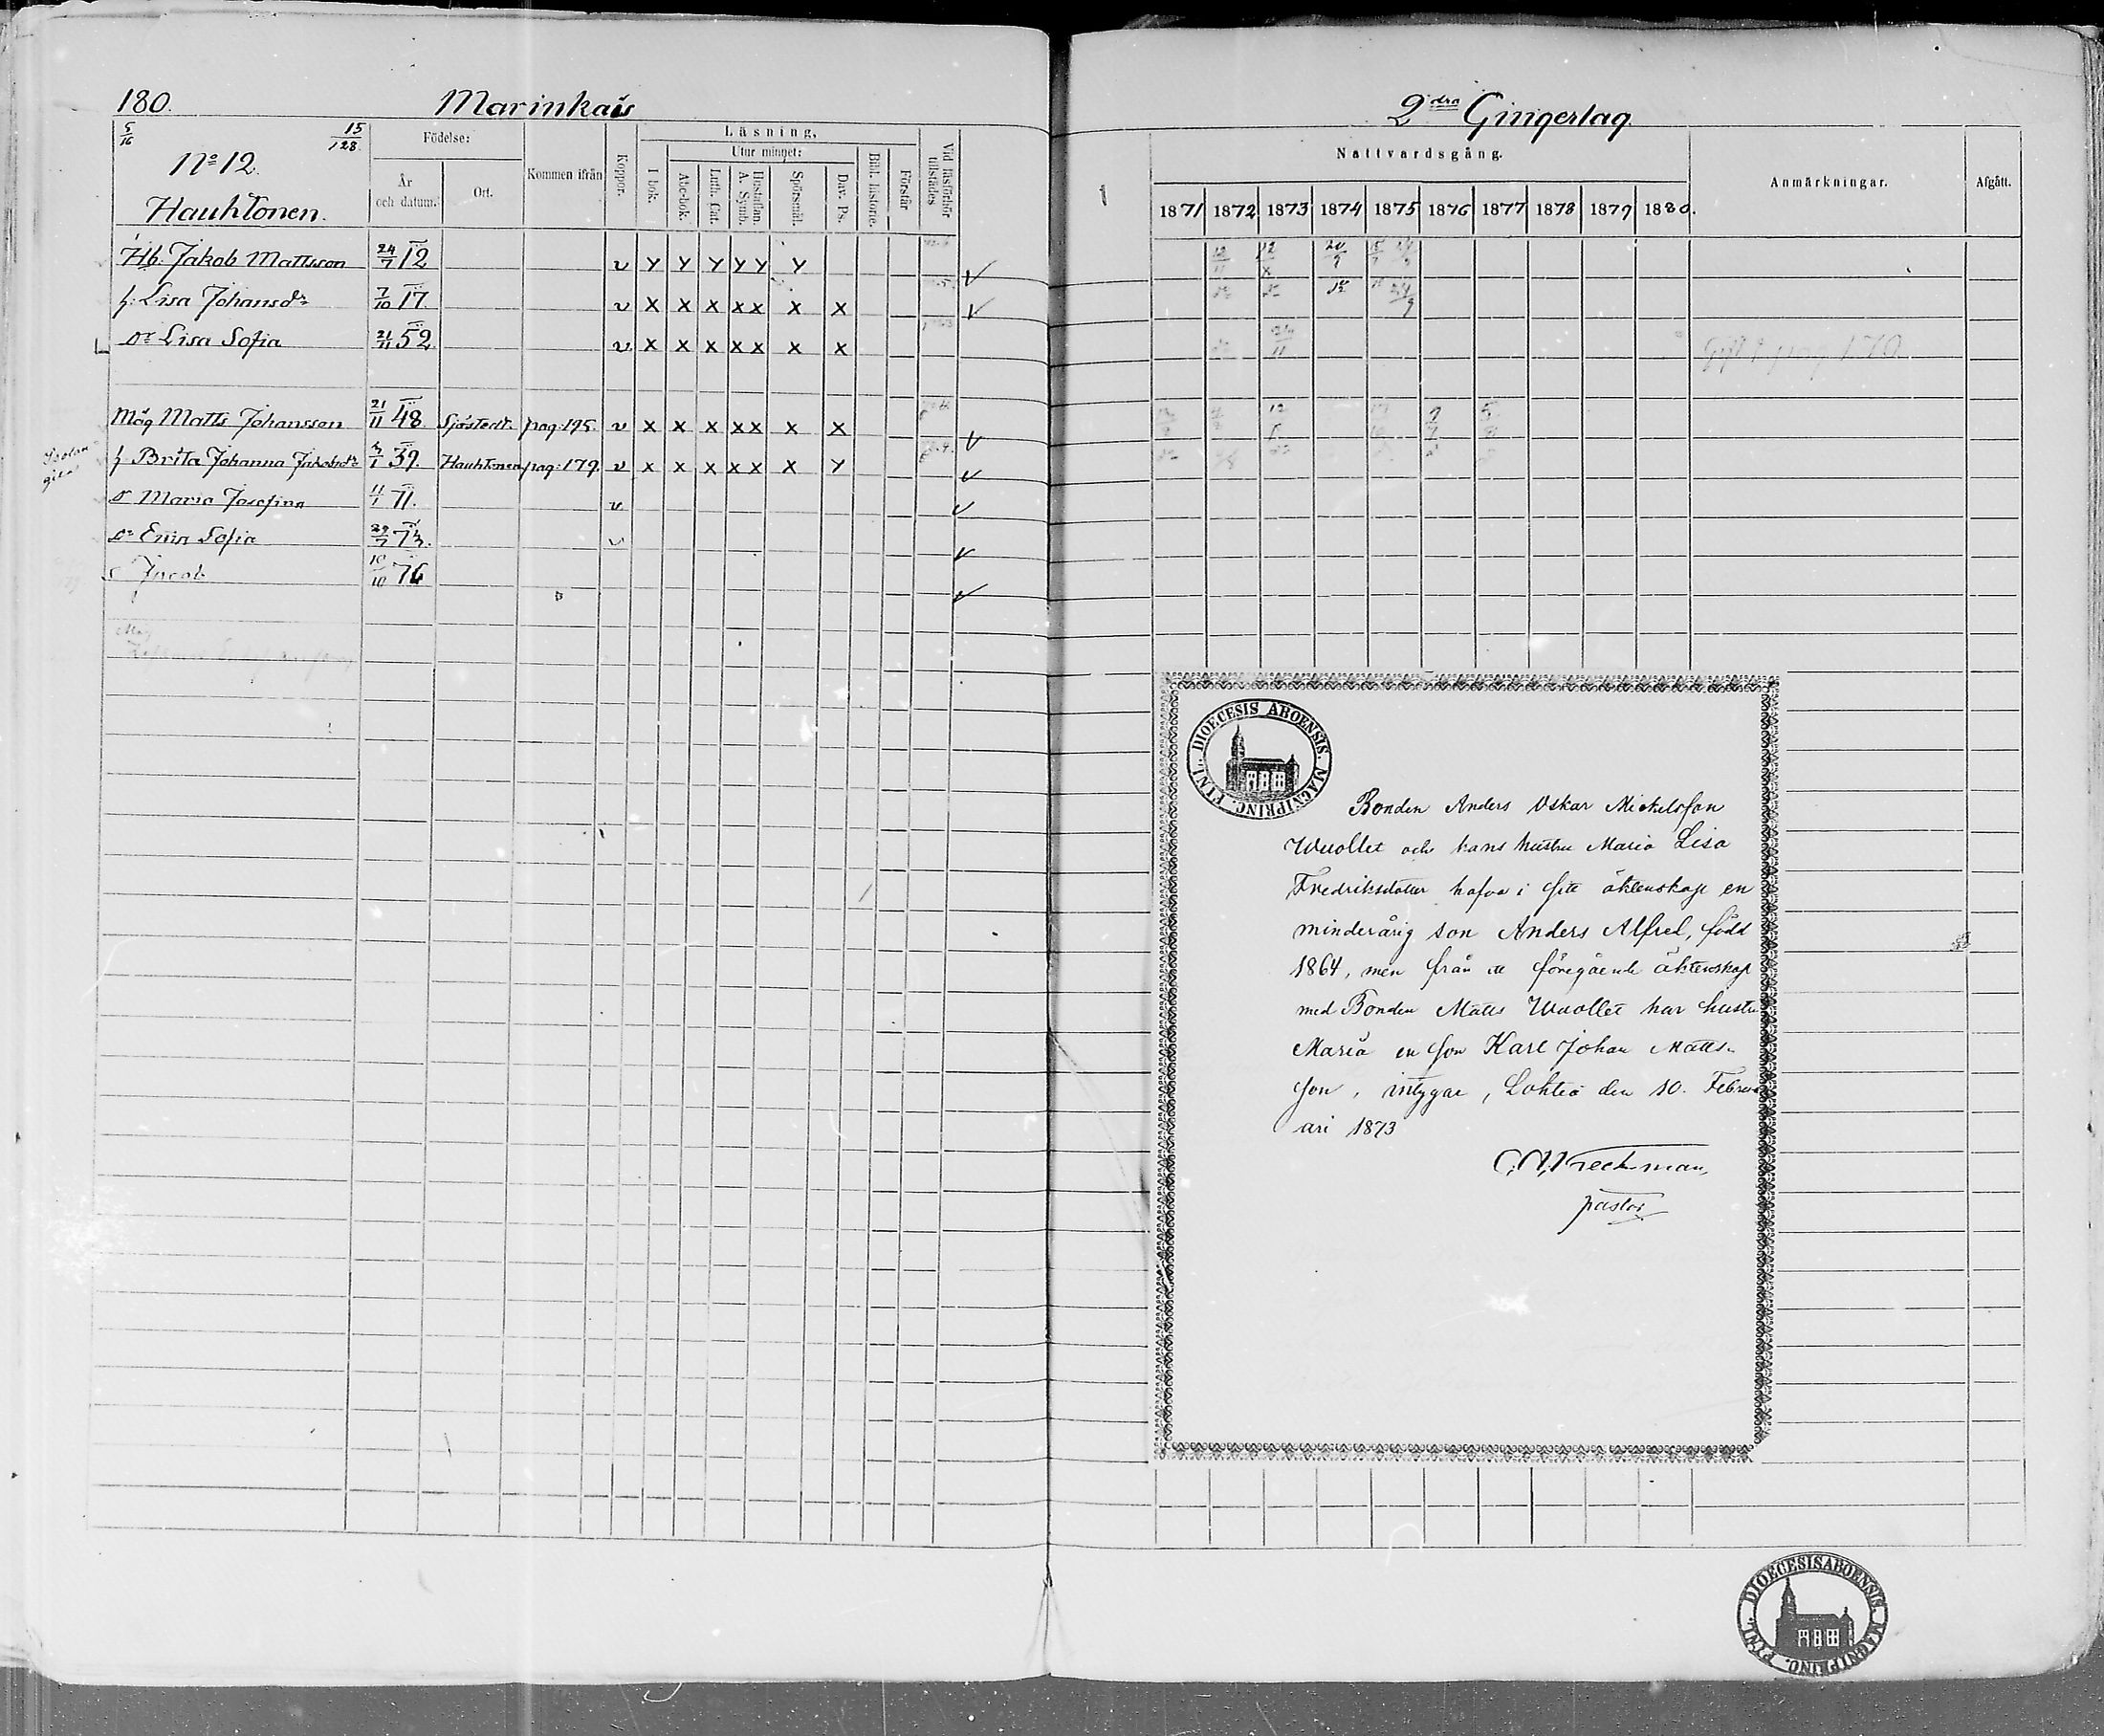 180. Marinkais
5/16 15/128
No 12.
Hauhtonen.
Födelse:
År och datum.
Ort.
Kommen ifrån
Koppor.
Läsning,
I bok.
Utur minnet:
Abc-bok.
Luth. Cat.
Hustaflan. A. Symb.
Spörsmål.
Dav. Ps.
Bibl. historie.
Förstår
Vid läsförhör tillstädes
Hb. Jakob Mattsson 24/7 12 v y y y y y y
h. Lisa Johansdr 7/10 17 v x x x x x x x
dr Lisa Sofia 21/11 52 v x x x x x x x
Måg Matts Johansson 21/11 48 Sjöstedt pag. 195. v x x x x x x x
h Brita Johanna Jakobsdr 39. Hauhtonen pag. 179. v x x x x x x y
dr Maria Josefina 11/1 71. v
dr Erin Sofia 29/7 73. v
s Jacob 10/10 76
2dra Gingerlag
Nattvardsgång.
1871 1872 1873 1874 1875 1876 1877 1878 1879 1880.
Anmärkningar.
Afgått.
Gift pag 170
DIOECESIS ABOENSIS. MAGNIPRINC. FINL.
Bonden Anders Oskar Mickelsson
Wuollet och hans hustru Maria Lisa
Fredriksdotter hafva i sitt äktenskap en
minderårig son Anders Alfred, född
1864, men från ett föregående äktenskap
med Bonden Matts Wuollet har hustru
Maria en son Karl Johan Matts-
son, intygar, Lohteå den 10. Febru-
ari 1873
pastor
DIOECESIS ABOENSIS. MAGNIPRINC. FINL.